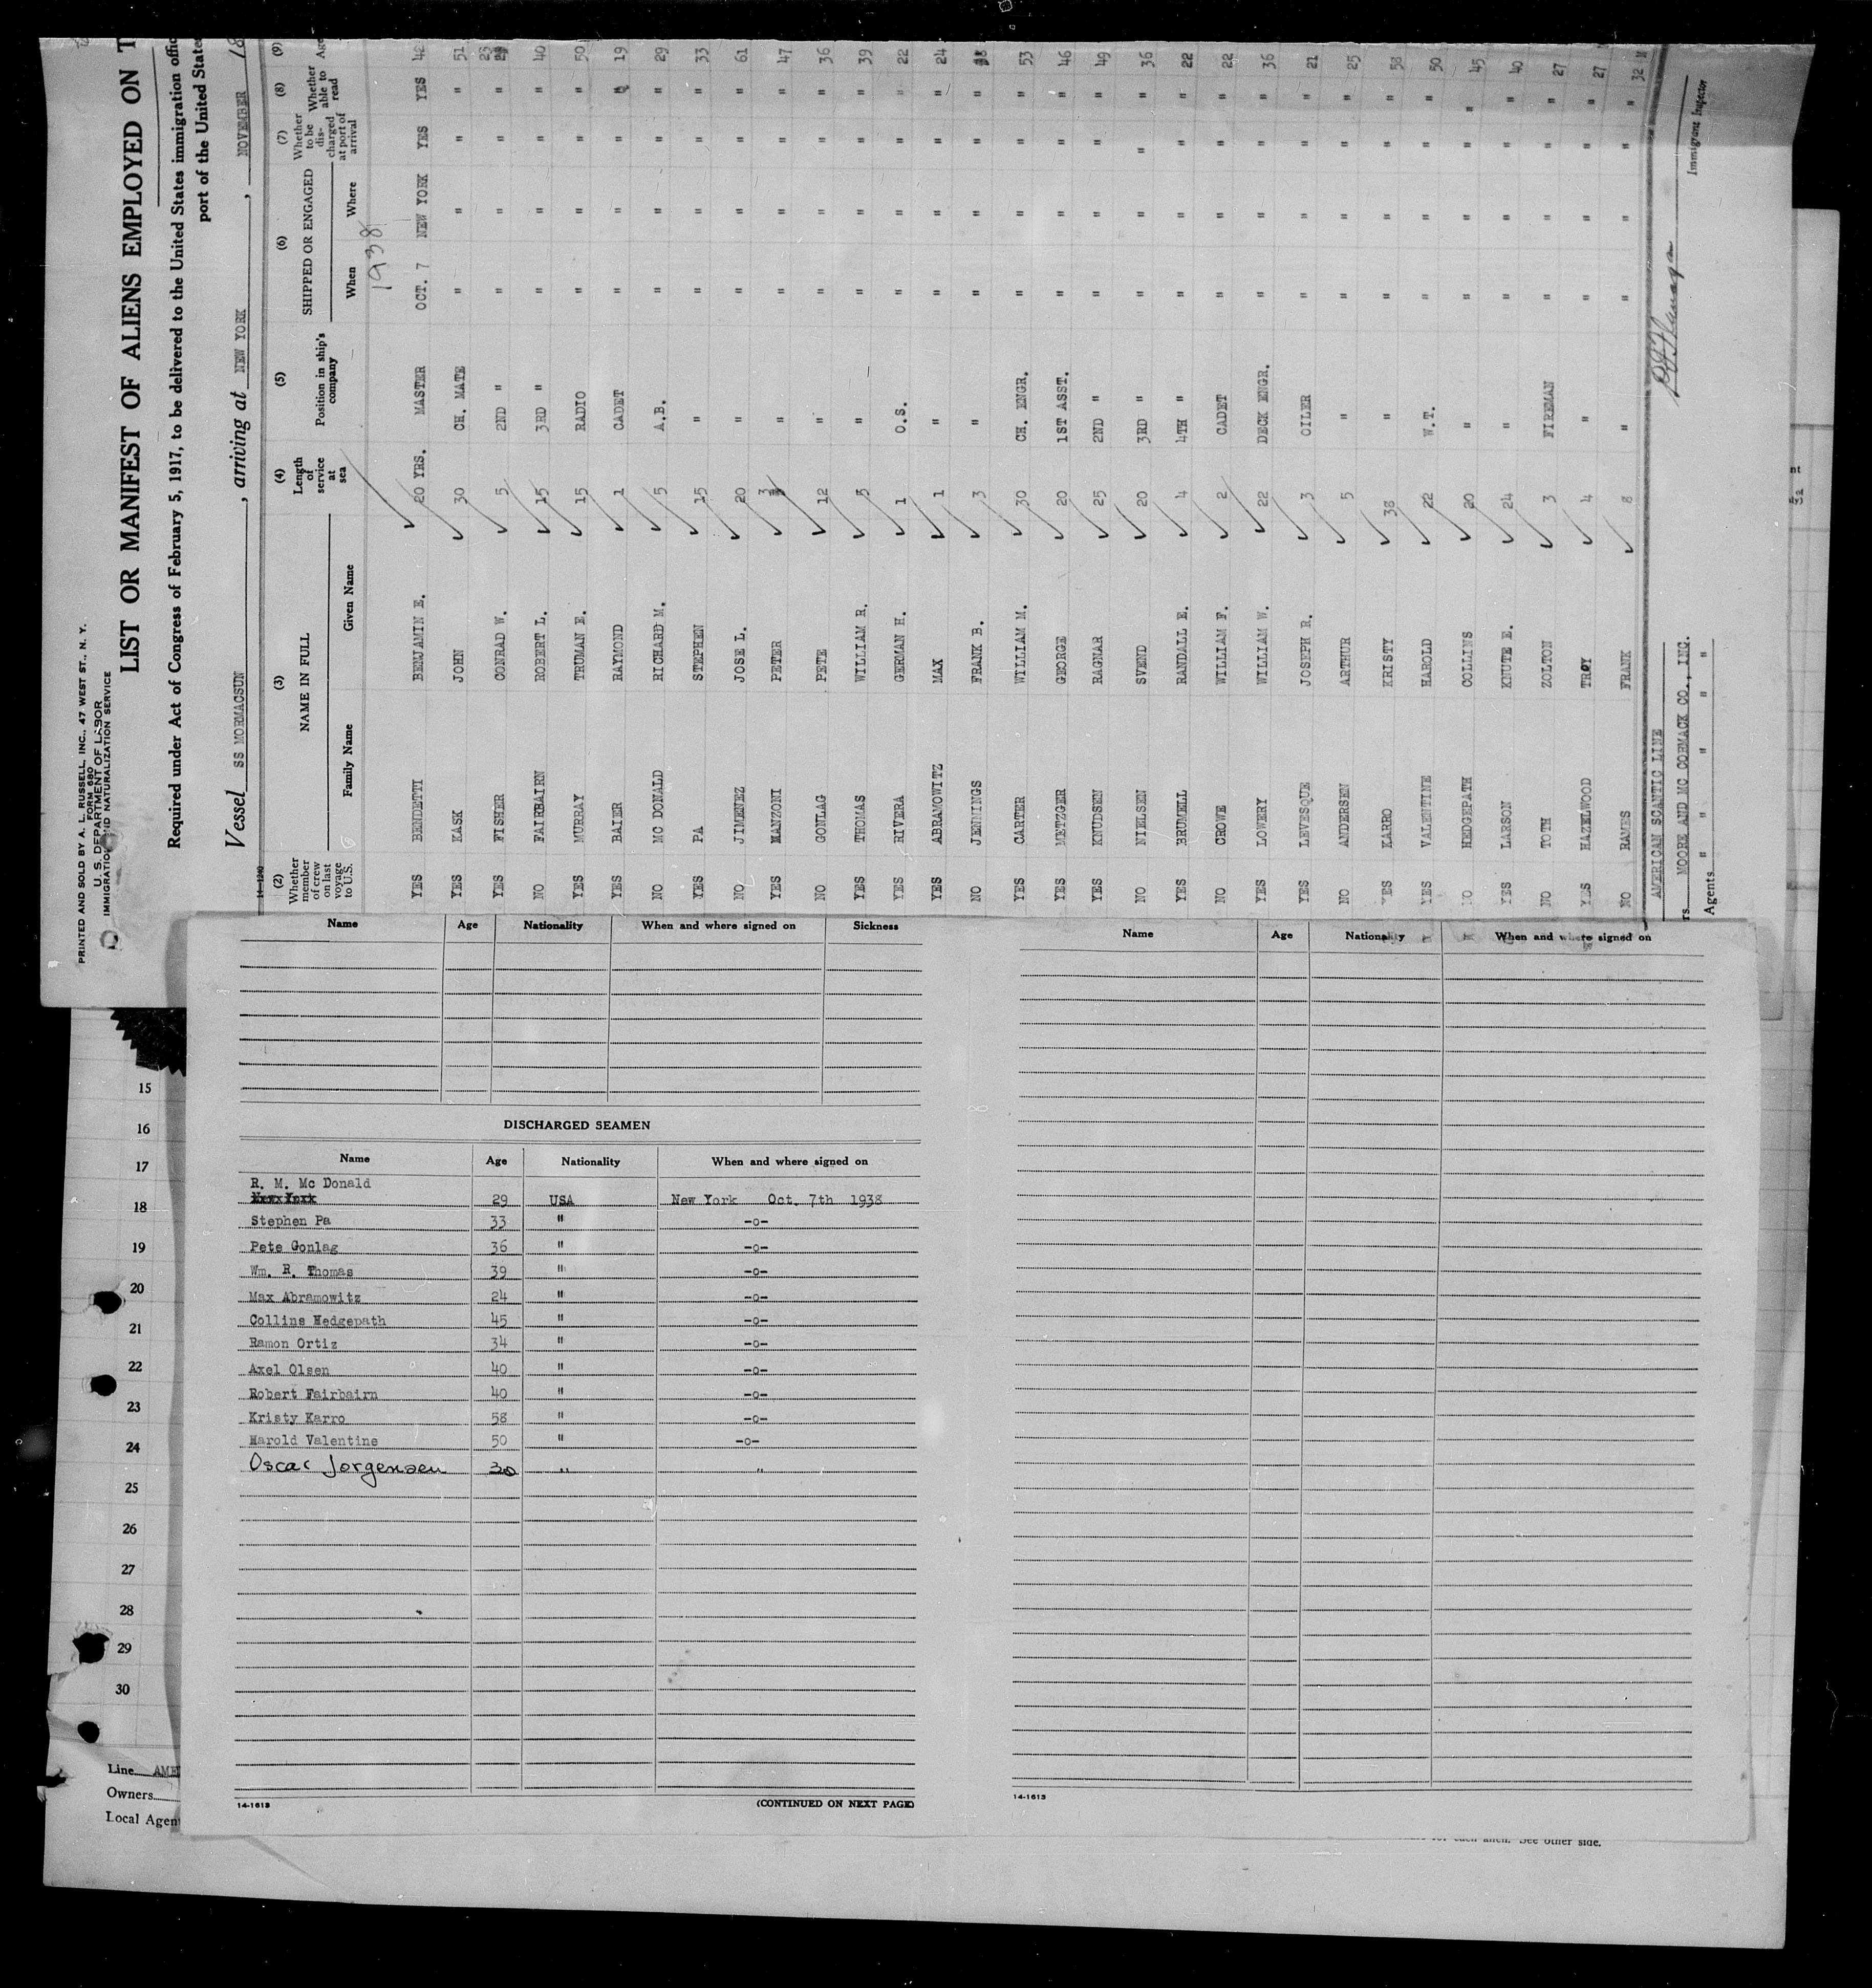 PRINTED AND SOLD BY A. L. RUSSELL, INC., 47 WEST ST., N. Y.
FORM 680
U. S. DEPARTMENT OF LABOR
IMMIGRATION AND NATURALIZATION SERVICE
LIST OR MANIFEST OF ALIENS EMPLOYED ON T
Required under Act of Congress of February 5, 1917, to be delivered to the United States immigration offic
port of the United State
Vessel SS MORMACSUN, arriving at NEW YORK, NOVEMBER 18
14-1240
(2) Whether member of crew on last voyage to U.S. (3) NAME IN FULL Family Name Given Name (4) Length of service at sea (5) Position in ship's company (6) SHIPPED OR ENGAGED When Where (7) Whether to be discharged at port of arrival (8) Whether able to read (9) Age
1938
YES BENDETTI BENJAMIN E. 20 YRS. MASTER OCT. 7 NEW YORK YES YES 42
YES KASK JOHN 30 CH. MATE " " " " 51
YES FISHER CONRAD W. 5 2ND " " " " " 23
NO FAIRBAIRN ROBERT L. 15 3RD " " " " " 40
YES MURRAY TRUMAN E. 15 RADIO " " " " 50
YES BAIER RAYMOND 1 CADET " " " " 19
NO MC DONALD RICHARD M. 5 A.B. " " " " 29
YES PA STEPHEN 15 " " " " " 33
NO JIMENEZ JOSE L. 20 " " " " " 61
YES MANZONI PETER 3 " " " " " 47
NO GONLAG PETE 12 " " " " " 36
YES THOMAS WILLIAM R. 5 " " " " " 39
YES RIVERA GERMAN H. 1 O.S. " " " " 22
YES ABRAMOWITZ MAX 1 " " " " " 24
NO JENNINGS FRANK B. 3 " " " " "
YES CARTER WILLIAM M. 30 CH. ENGR. " " " " 53
YES METZGER GEORGE 20 1ST ASST. " " " " 46
YES KNUDSEN RAGNAR 25 2ND " " " " " 49
NO NIELSEN SVEND 20 3RD " " " " " 36
YES BRUMELL RANDALL E. 4 4TH " " " " " 22
NO CROWE WILLIAM F. 2 CADET " " " " 22
YES LOWERY WILLIAM W. 22 DECK ENGR. " " " " 36
YES LEVESQUE JOSEPH R. 3 OILER " " " " 21
NO ANDERSEN ARTHUR 5 " " " " " 25
YES KARRO KRISTY 38 " " " " " 58
YES VALENTINE HAROLD 22 W.T. " " " " 50
NO HEDGEPATH COLLINS 20 " " " " " 45
YES LARSON KNUTE E. 24 " " " " " 40
NO TOTH ZOLTON 3 FIREMAN " " " " 27
YES HAZELWOOD TROY 4 " " " " " 27
NO RAMES FRANK 8 " " " " " 32 M
AMERICAN SCANTIC LINE
rs MOORE AND MC CORMACK CO., INC.
Agents " " " " "
Immigrant Inspector
Name Age Nationality When and where signed on Sickness
DISCHARGED SEAMEN
Name Age Nationality When and where signed on
R. M. Mc Donald
29 USA New York Oct. 7th 1938
Stephen Pa 33 " -o-
Pete Gonlag 36 " -o-
Wm. R. Thomas 39 " -o-
Max Abramowitz 24 " -o-
Collins Hedgepath 45 " -o-
Ramon Ortiz 34 " -o-
Axel Olsen 40 " -o-
Robert Fairbairn 40 " -o-
Kristy Karro 58 " -o-
Harold Valentine 50 " -o-
Oscar Jorgensen 30 " "
14-1613
(CONTINUED ON NEXT PAGE)
Name Age Nationality When and where signed on
14-1613
15
16
17
18
19
20
21
22
23
24
25
26
27
28
29
30
Line AME
Owners
Local Agen
See other side.
nt